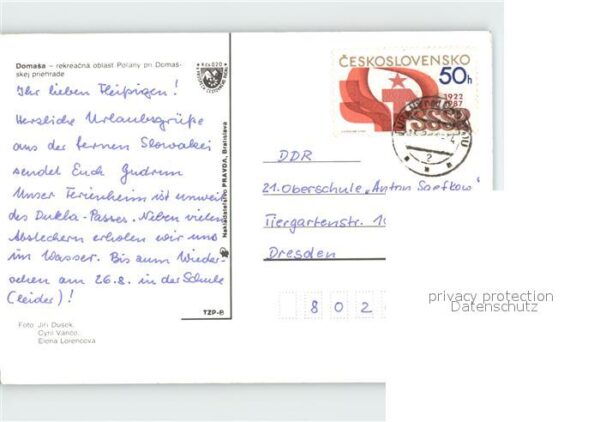 Domaša – rekreačná oblast Poľany pri Domaš-
skej priehrade
Ihr lieben Fleißigen!
Herzliche Urlaubsgrüße
aus der fernen Slowakei
sendet Euch Gudrun
Unser Ferienheim ist unweit
des Dukla-Passes. Neben vielen
Abstechern erholen wir uns
im Wasser. Bis zum Wieder-
sehen am 26.8. in der Schule
(leider)!
Foto: Jiří Dušek,
Cyril Vančo,
Elena Lorencova
Nakladateľstvo PRAVDA, Bratislava
TZP-8
ČESKOSLOVENSKO
50h
1922
1987
SSSR
DDR
21. Oberschule „Anton Saefkow"
Tiergartenstr. 1
Dresden
8 0 2
privacy protection
Datenschutz